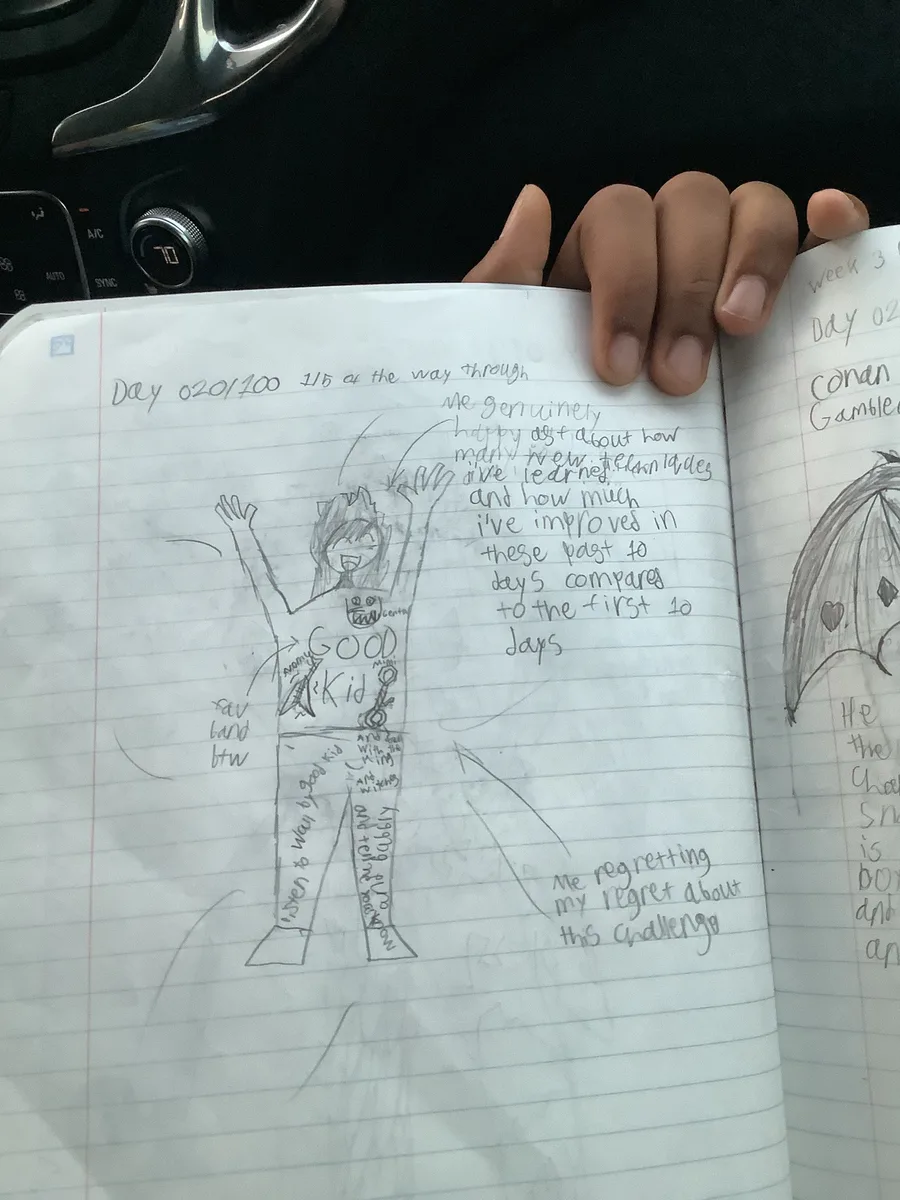 A/C
70
AUTO
SYNC
Day 020/100 1/5 of the way through
Me genuinely
happy asf about how
many new techniques
i've learned
and how much
i've improved in
these past 10
days compares
to the first 10
days
GOOD
Kid
Nomu
Mimi
center
Fav
band
btw
listen to Wall by good kid
and tell me
Me regretting
my regret about
this challenge
Week 3
Day 02
Conan
Gamble
He
the
is
and
an